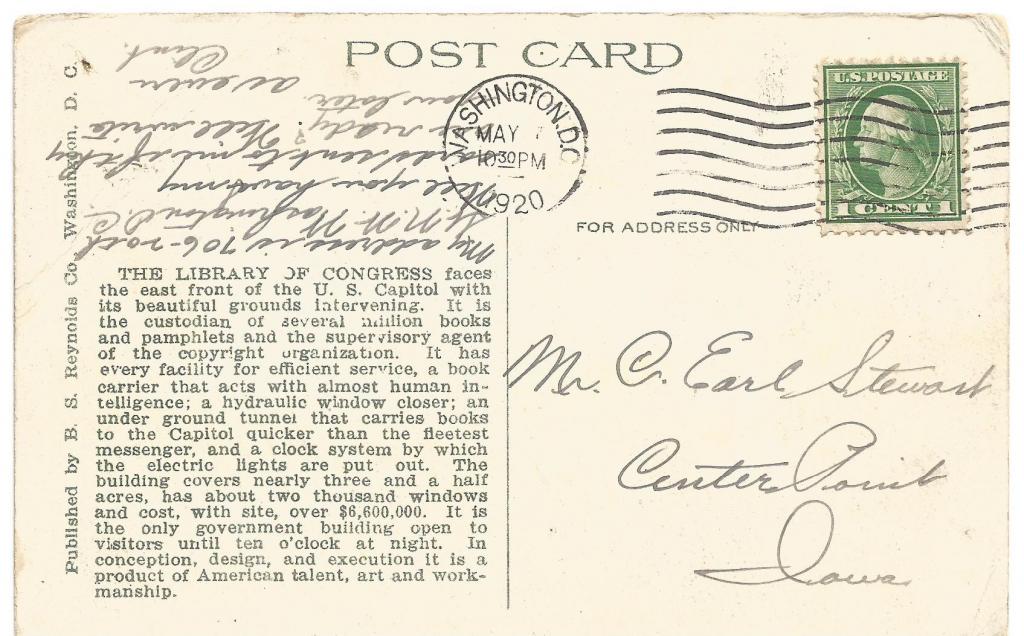 POST CARD
WASHINGTON, D.C.
MAY 7
10 30 PM
1920
U.S. POSTAGE
1 CENT 1
FOR ADDRESS ONLY
Mr. C. Earl Stewart
Center Point
Iowa
My address is 706-20th
St N.W. Washington DC
Will you have my
sent to me if they
ready Will write
you later
as ever
Clint.
THE LIBRARY OF CONGRESS faces
the east front of the U. S. Capitol with
its beautiful grounds intervening. It is
the custodian of several million books
and pamphlets and the supervisory agent
of the copyright organization. It has
every facility for efficient service, a book
carrier that acts with almost human in-
telligence; a hydraulic window closer; an
under ground tunnel that carries books
to the Capitol quicker than the fleetest
messenger, and a clock system by which
the electric lights are put out. The
building covers nearly three and a half
acres, has about two thousand windows
and cost, with site, over $6,600,000. It is
the only government building open to
visitors until ten o'clock at night. In
conception, design, and execution it is a
product of American talent, art and work-
manship.
Published by B. S. Reynolds Co. Washington, D. C.